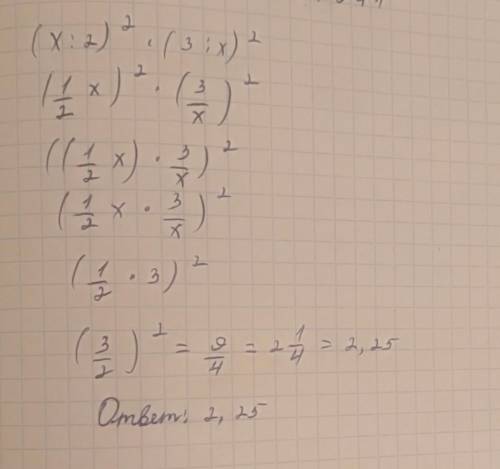 (x : 2)² · (3 : x)²
(1/2 x)² · (3/x)²
((1/2 x) · 3/x)²
(1/2 x · 3/x)²
(1/2 · 3)²
(3/2)² = 9/4 = 2 1/4 = 2,25
Ответ: 2,25